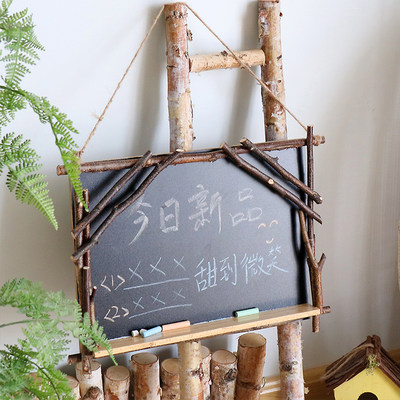 今日新品
<1> X X X
甜到微笑
<2> X X X